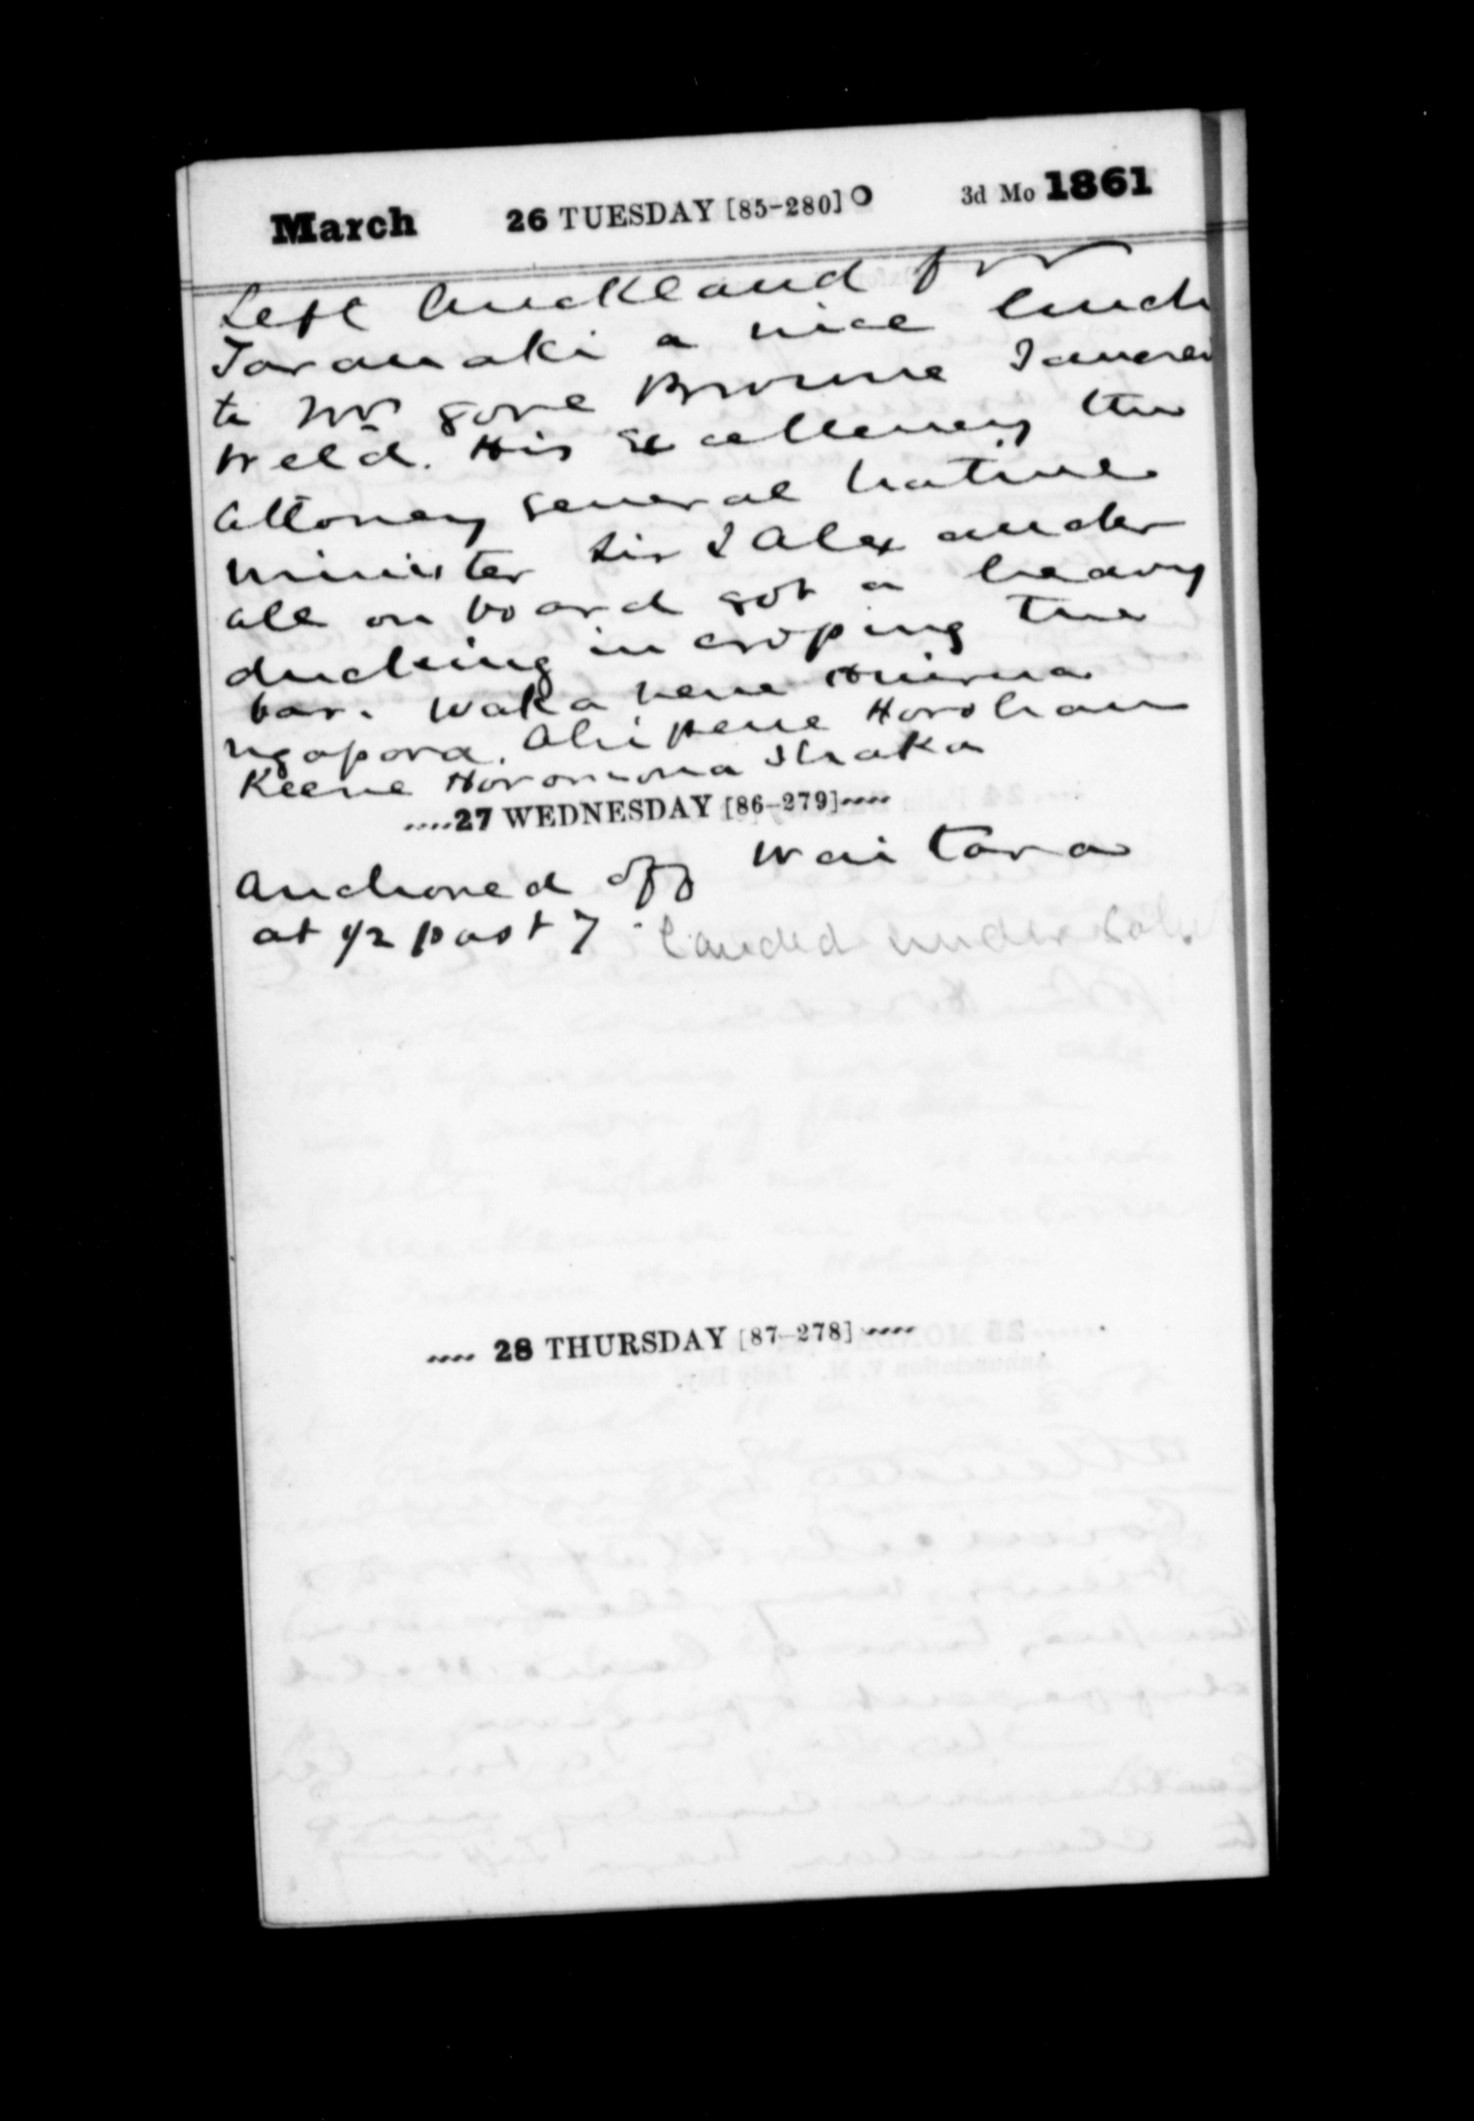 March 26 TUESDAY [85-280] O 3d Mo 1861
Left Auckland for
Taranaki a nice lunch
to Mrs gore Browne Tancred
Weld. His Excellency the
Attorney general native
minister Sir J Alex ander
all on board got a heavy
ducking in croping the
bar. Waka nene
ngapora.
Keene Horomona
....27 WEDNESDAY [86-279]....
Anchored off Wai tara
at 1/2 past 7. landed under
.... 28 THURSDAY [87-278] ....